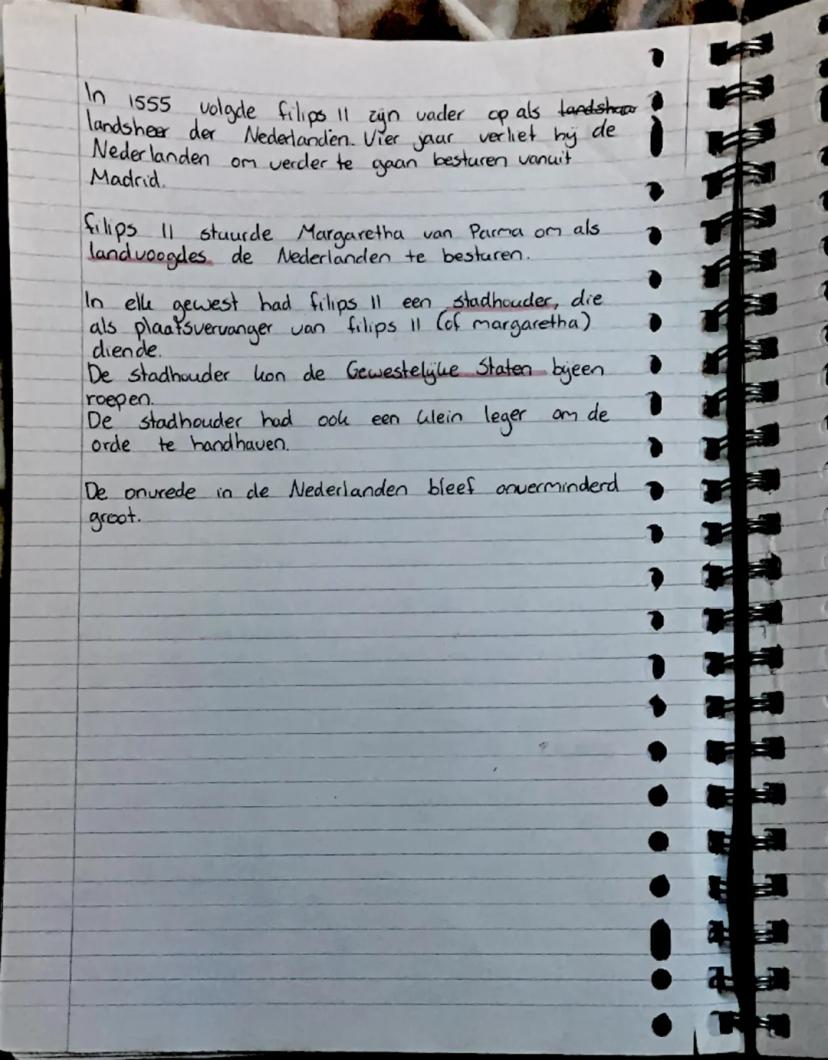 In 1555 volgde filips II zijn vader op als landshaar
landsheer der Nederlanden. Vier jaar verliet hij de
Nederlanden om verder te gaan besturen vanuit
Madrid.
filips II stuurde Margaretha van Parma om als
landvoogdes de Nederlanden te besturen.
In elk gewest had filips II een stadhouder, die
als plaatsvervanger van filips II (of margaretha)
diende.
De stadhouder kon de Gewestelijke Staten bijeen
roepen.
De stadhouder had ook een klein leger om de
orde te handhaven.
De onvrede in de Nederlanden bleef onverminderd
groot.